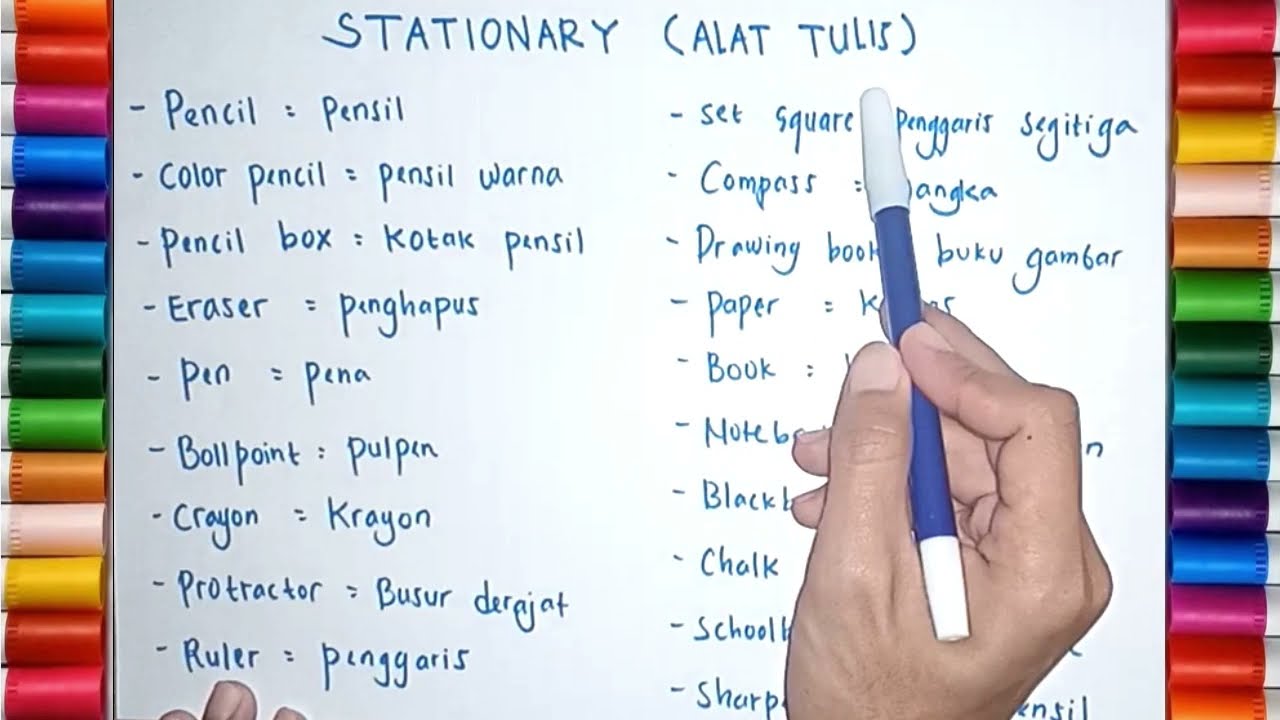 STATIONARY (ALAT TULIS)
- Pencil = pensil
- Color pencil = pensil warna
- Pencil box = Kotak pensil
- Eraser = penghapus
- Pen = pena
- Bollpoint = pulpen
- Crayon = Krayon
- Protractor = Busur derajat
- Ruler = penggaris
- Set square penggaris segitiga
- Compass =
- Drawing book buku gambar
- Paper =
- Book =
-
-
- Chalk
-
-